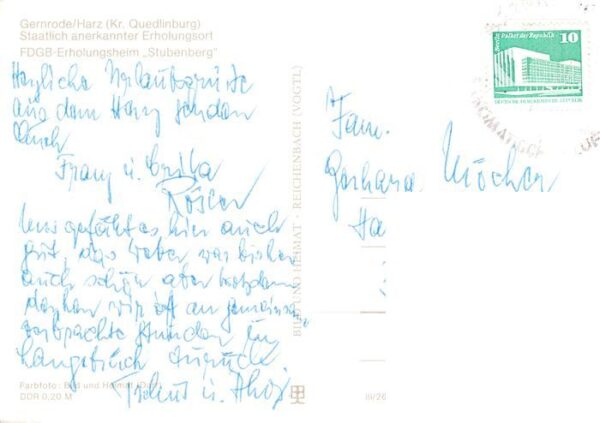 Gernrode/Harz (Kr. Quedlinburg)
Staatlich anerkannter Erholungsort
FDGB-Erholungsheim „Stubenberg"
Herzliche Urlaubsgrüße
aus dem Harz senden
Euch
Franz u. Erika
Rösler
Uns gefällt es hier auch
gut, das Wetter war bisher
auch schön aber trotzdem
denken wir oft an gemeinsam
verbrachte Stunden in
zurück
Tschüs u. Ahoj
Farbfoto: Bild und Heimat
DDR 0,20 M
BILD UND HEIMAT · REICHENBACH (VOGTL)
III/26
Berlin Palast der Republik
10
DEUTSCHE DEMOKRATISCHE REPUBLIK
Fam.
Gerhard